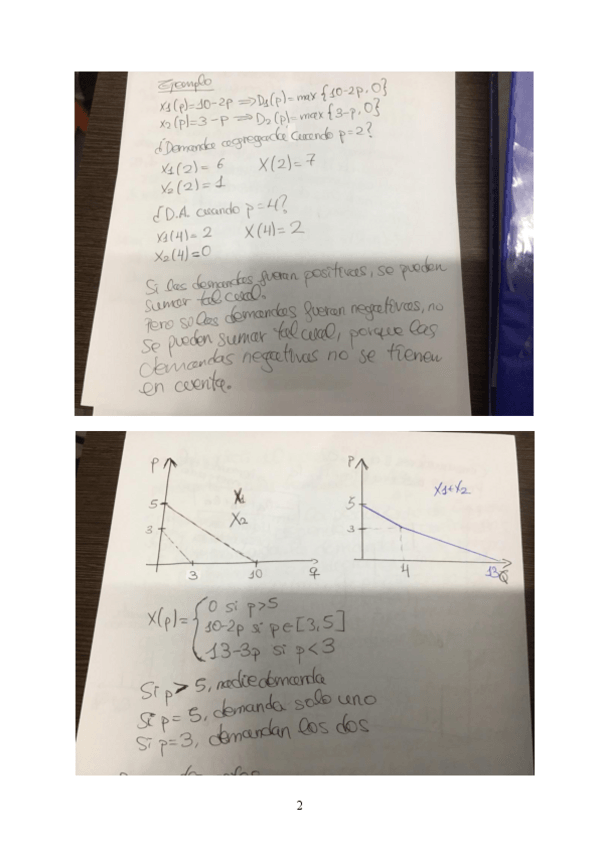 Ejemplo
x1(p)=10-2p ⇒ D1(p)= max {10-2p, 0}
x2(p)=3-p ⇒ D2(p)= max {3-p, 0}
¿Demanda agregada cuando p=2?
x1(2)= 6 X(2)= 7
x2(2)= 1
¿D.A. cuando p=4?
x1(4)= 2 X(4)= 2
x2(4)=0
Si las demandas fueran positivas, se pueden
sumar tal cual.
Pero so las demandas fueran negativas, no
se pueden sumar tal cual, porque las
demandas negativas no se tienen
en cuenta.
P
5
3
X1
X2
3 10 q
P
5
3
X1+X2
4 13 Q
X(p)= { 0 si p>5
10-2p si p∈[3,5]
13-3p si p<3
Si p > 5, nadie demanda
Si p= 5, demanda solo uno
Si p=3, demandan los dos
2